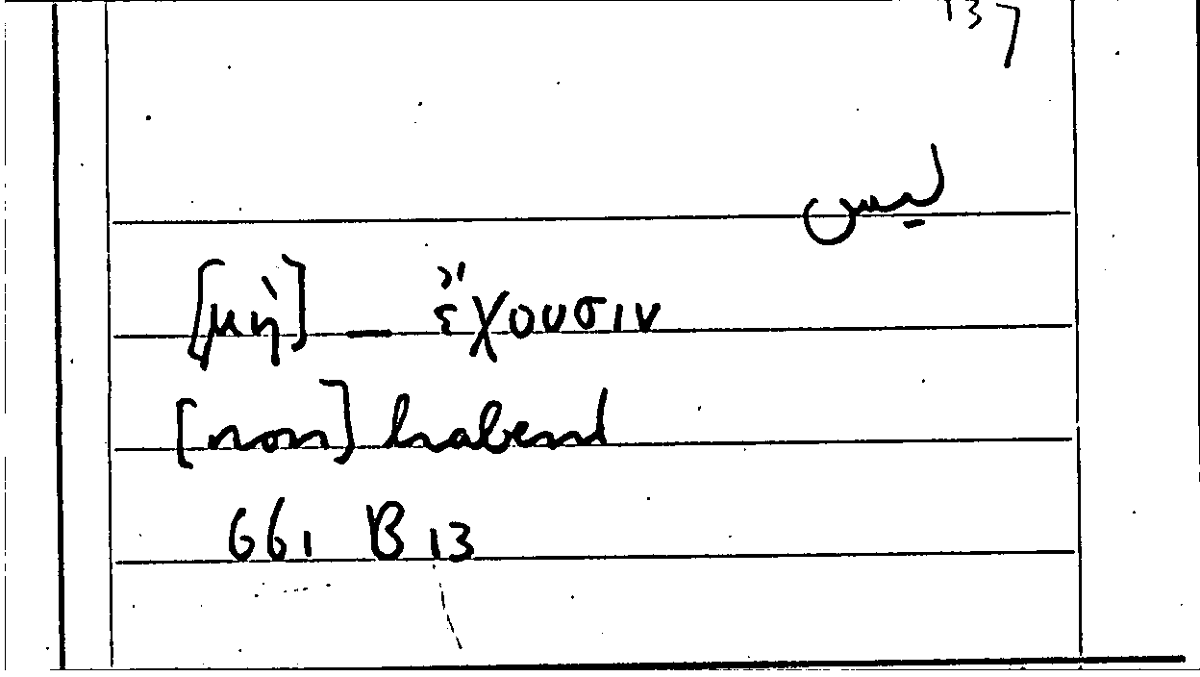 137
ليس
[μὴ] — ἔχουσιν
[non] habent
661 B 13